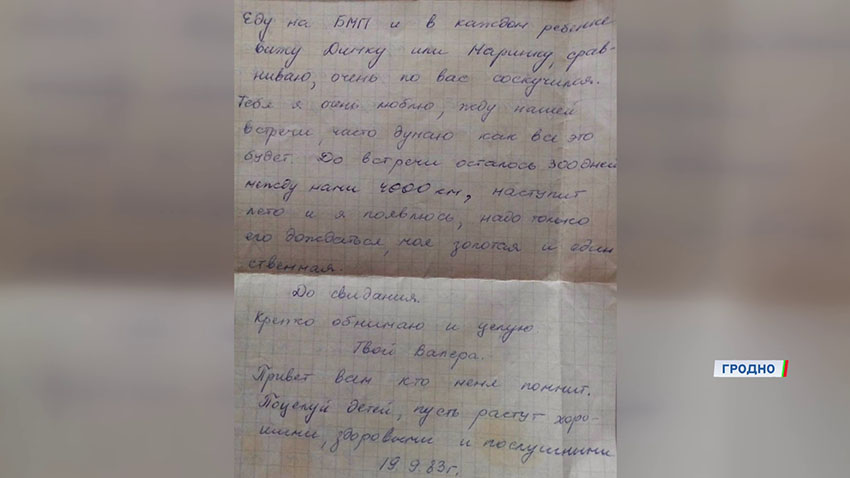 Еду на БМП и в каждом ребенке
вижу Динку или Маринку, срав-
ниваю, очень по вас соскучился.
Тебя я очень люблю, жду нашей
встречи, часто думаю как все это
будет. До встречи осталось 300 дней
между нами 4000 км, наступит
лето и я появлюсь, надо только
его дождаться, моя золотая и един
ственная.
До свидания.
Крепко обнимаю и целую
Твой Валера.
Привет всем кто меня помнит.
Поцелуй детей, пусть растут хоро-
шими, здоровыми и послушными
19.9.83г.
ГРОДНО